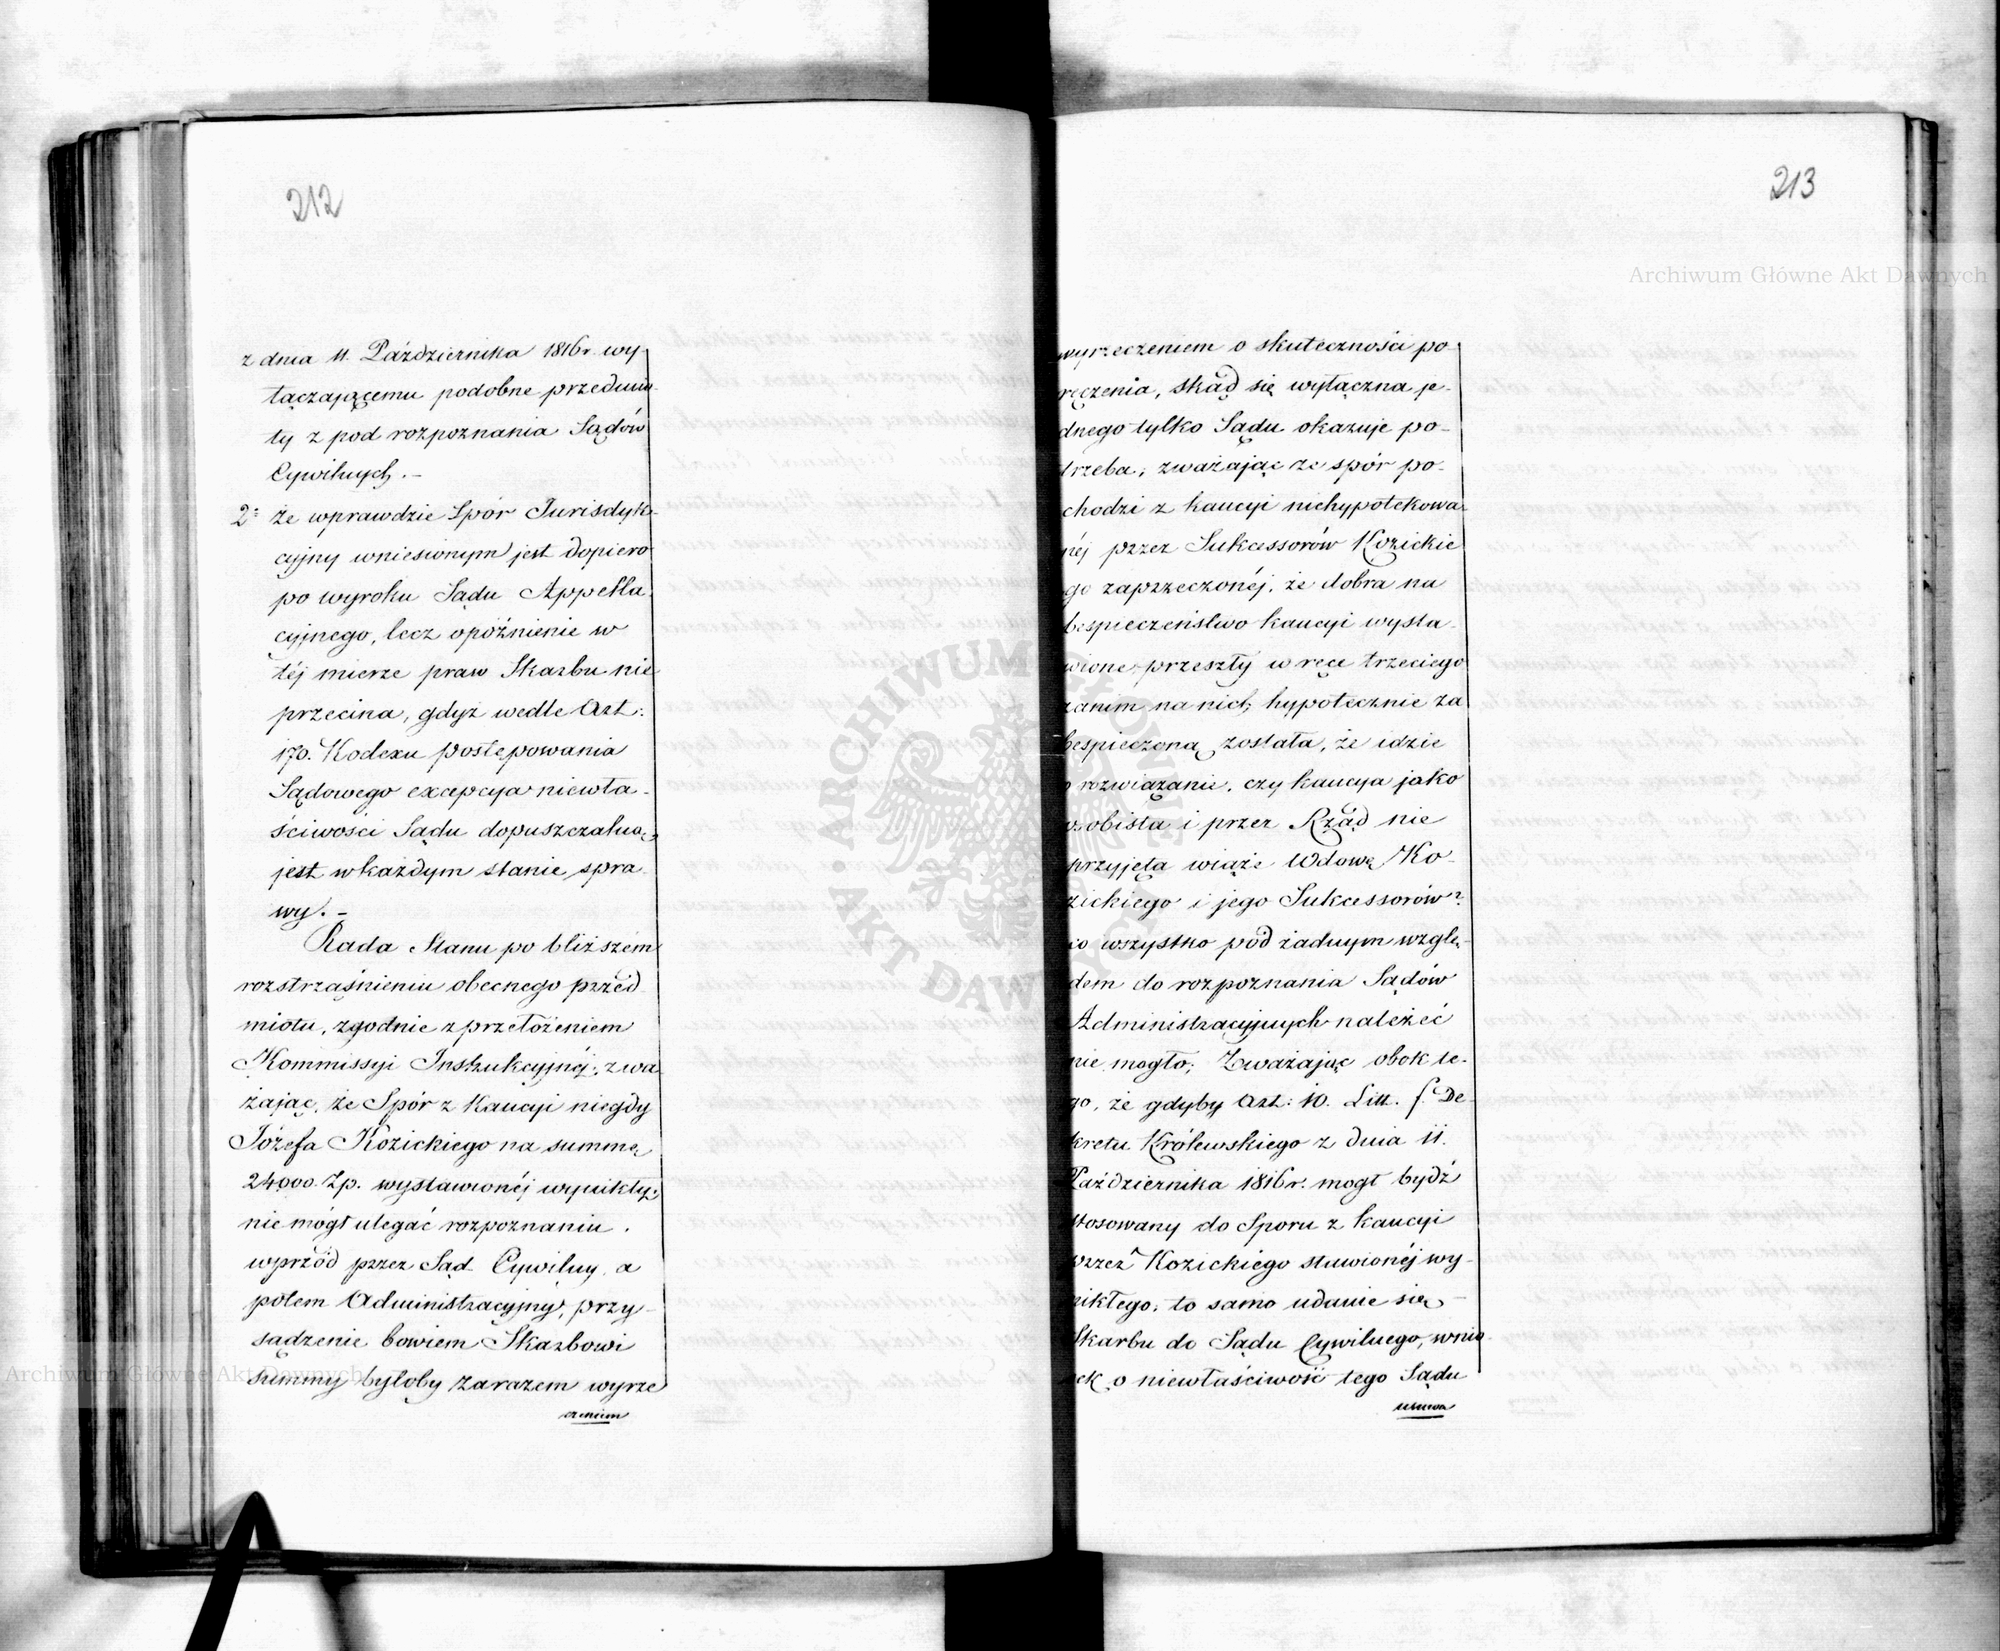 212
z dnia 11. Października 1816r. wy-
łączającemu podobne przedmio-
ty z pod rozpoznania Sądów
Cywilnych. –
2° że wprawdzie Spór Jurisdyk-
cyjny wniesionym jest dopiero
po wyroku Sądu Appella-
cyjnego, lecz opóźnienie w
téj mierze praw Skarbu nie
przecina, gdyż wedle Art:
170. Kodexu postępowania
Sądowego excepcya niewła-
ściwości Sądu dopuszczalną
jest w każdym stanie spra-
wy. –
Rada Stanu po bliższém
rozstrząśnieniu obecnego przed-
miotu, zgodnie z przełożeniem
Kommissyi Instrukcyjnéj; zwa-
żając, że Spór z Kaucyi niegdy
Józefa Kozickiego na summę
24000. Zp. wystawionéj wynikły,
nie mógł ulegać rozpoznaniu
wprzód przez Sąd Cywilny, a
potem Administracyjny, przy-
sądzenie bowiem Skarbowi
summy byłoby zarazem wyrze-
czeniem
213
wyrzeczeniem o skuteczności po-
ręczenia, skąd się wyłączna je-
dnego tylko Sądu okazuje po-
trzeba; zważając że spór po-
chodzi z kaucyi niehypotekowa-
néj przez Sukcessorów Kozickie
go zaprzeczonéj, że dobra na
bespieczeństwo kaucyi wysta-
wione, przeszły w ręce trzeciego
zanim na nich hypotecznie za
bespieczoną została, że idzie
o rozwiązanie, czy kaucya jako
osobista i przez Rząd nie
przyjęta wiąże Wdowę Ko-
zickiego i jego Sukcessorów?
co wszystko pod żadnym wzglę-
dem do rozpoznania Sądów
Administracyjnych należéć
nie mogło; Zważając obok te-
go, że gdyby Art: 10. Litt. f. De-
kretu Królewskiego z dnia 11.
Października 1816r. mogł bydź
stosowany do Sporu z kaucyi
przez Kozickiego stawionéj wy-
nikłego, to samo udanie się
Skarbu do Sądu Cywilnego, wnio-
sek o niewłaściwość tego Sądu
usuwa
Archiwum Główne Akt Dawnych
Archiwum Główne Akt Dawnych